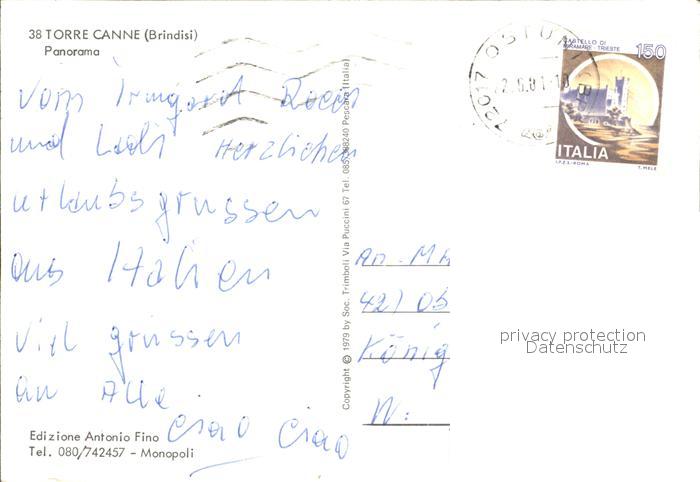 38 TORRE CANNE (Brindisi)
Panorama
Vom Irmgard Rocco
und Ladi Herzlichen
urlaubsgrüssen
aus Italien
Viel grüssen
an Alle
Ciao Ciao
Edizione Antonio Fino
Tel. 080/742457 - Monopoli
Copyright © 1979 by Soc. Trimboli Via Puccini 67 Tel. 085/ 68240 Pescara (Italia)
72017 OSTUNI
CASTELLO DI
MIRAMARE - TRIESTE
150
ITALIA
I.P.Z.S.-ROMA T. MELE
An.
42)
König
N:
privacy protection
Datenschutz